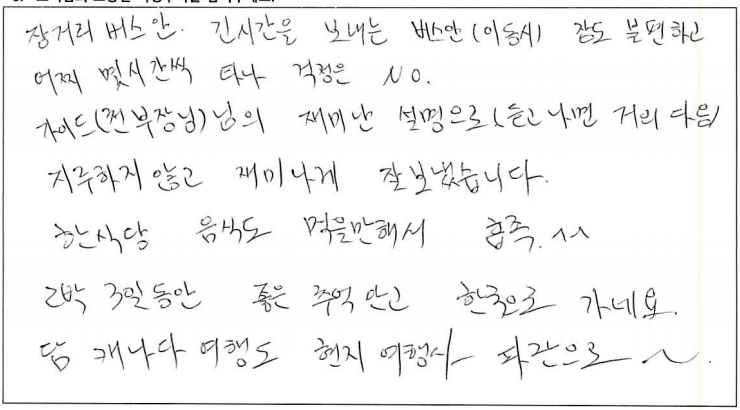 장거리 버스안. 긴시간을 보내는 버스안(이동시) 잠도 불편하고
어찌 몇시간씩 타나 걱정은 NO.
가이드(전부장님)님의 재미난 설명으로(듣고나면 거의 다음)
지루하지 않고 재미나게 잘보냈습니다.
한식당 음식도 먹을만해서 흡족. ^^
2박 3일동안 좋은 추억 안고 한국으로 가네요.
담 캐나다 여행도 현지 여행사 파란으로 ~.